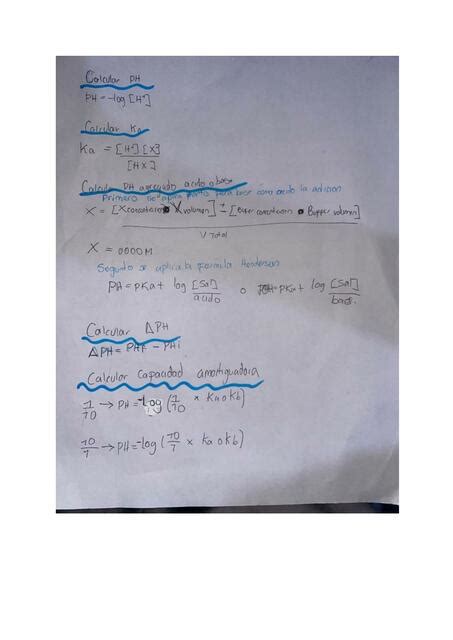 Calcular pH
PH = -log [H⁺]
Calcular Ka
Ka = [H⁺] [X]
[HX]
Calcular PH agregado acido o base
Primero se aplica tanto para base como acido la adicion
X = [X concentracion • X volumen] ± [Buffer concentracion • Buffer volumen]
V Total
X = 0000M
Segundo se aplica la formula Henderson
PH = PKa + log [Sal] o PH = PKa + log [Sal]
acido base.
Calcular ΔPH
ΔPH = PHF - PHi
Calcular capacidad amortiguadora
1/10 → PH = -log (1/10 × Ka o Kb)
10/1 → PH = -log (10/1 × Ka o Kb)